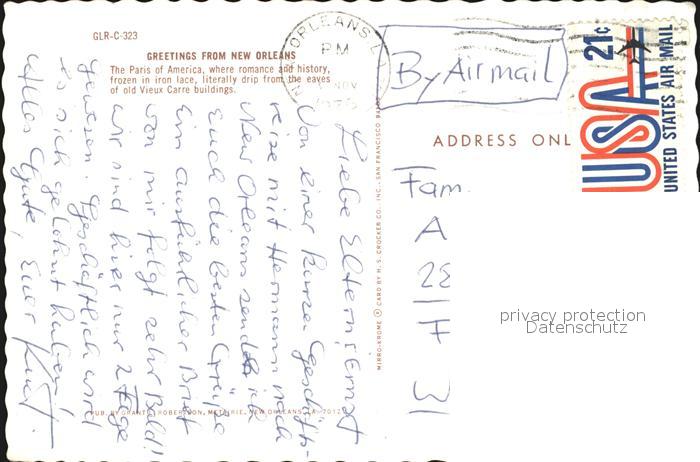 GLR-C-323
GREETINGS FROM NEW ORLEANS
The Paris of America, where romance and history,
frozen in iron lace, literally drip from the eaves
of old Vieux Carre buildings.
NEW ORLEANS, LA
PM
NOV
By Air mail
21c
USA
UNITED STATES AIR MAIL
ADDRESS ONL
Liebe Eltern, Ernst
Von einer kurzen Geschäfts-
reise mit Hermann nach
New Orleans sende ich
Euch die besten Grüße
Ein ausführlicher Brief
von mir folgt sehr bald!
Wir sind hier nur 2 Tage
gewesen. Geschäftlich wird
es sich gelohnt haben!
Alles Gute, Euer Kurt.
MIRRO-KROME ® CARD BY H. S. CROCKER CO., INC., SAN FRANCISCO
Fam.
A
F
privacy protection
Datenschutz
PUB. BY GRANT L. ROBERTSON, METAIRIE, NEW ORLEANS, LA.